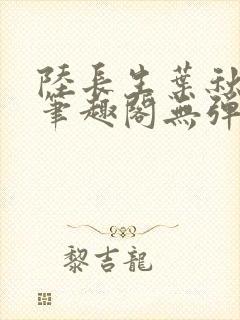 陸長生葉秋
筆趣閣無彈
黎吉龍